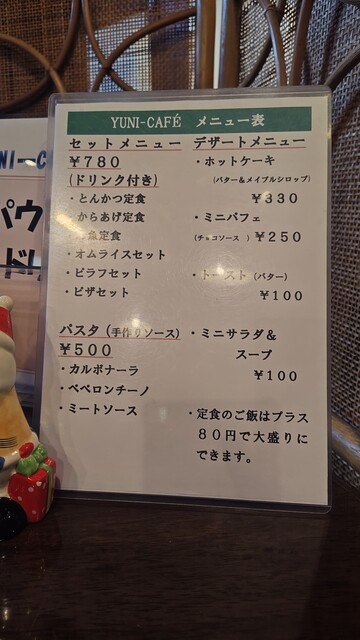 YUNI-CAFÉ メニュー表
セットメニュー
￥780
(ドリンク付き)
・とんかつ定食
からあげ定食
魚定食
・オムライスセット
・ピラフセット
・ピザセット
パスタ (手作りソース)
￥500
・カルボナーラ
・ペペロンチーノ
・ミートソース
デザートメニュー
・ホットケーキ
(バター＆メイプルシロップ)
￥330
・ミニパフェ
(チョコソース ) ￥250
・トースト (バター)
￥100
・ミニサラダ＆
スープ
￥100
・定食のご飯はプラス
８０円で大盛りに
できます。